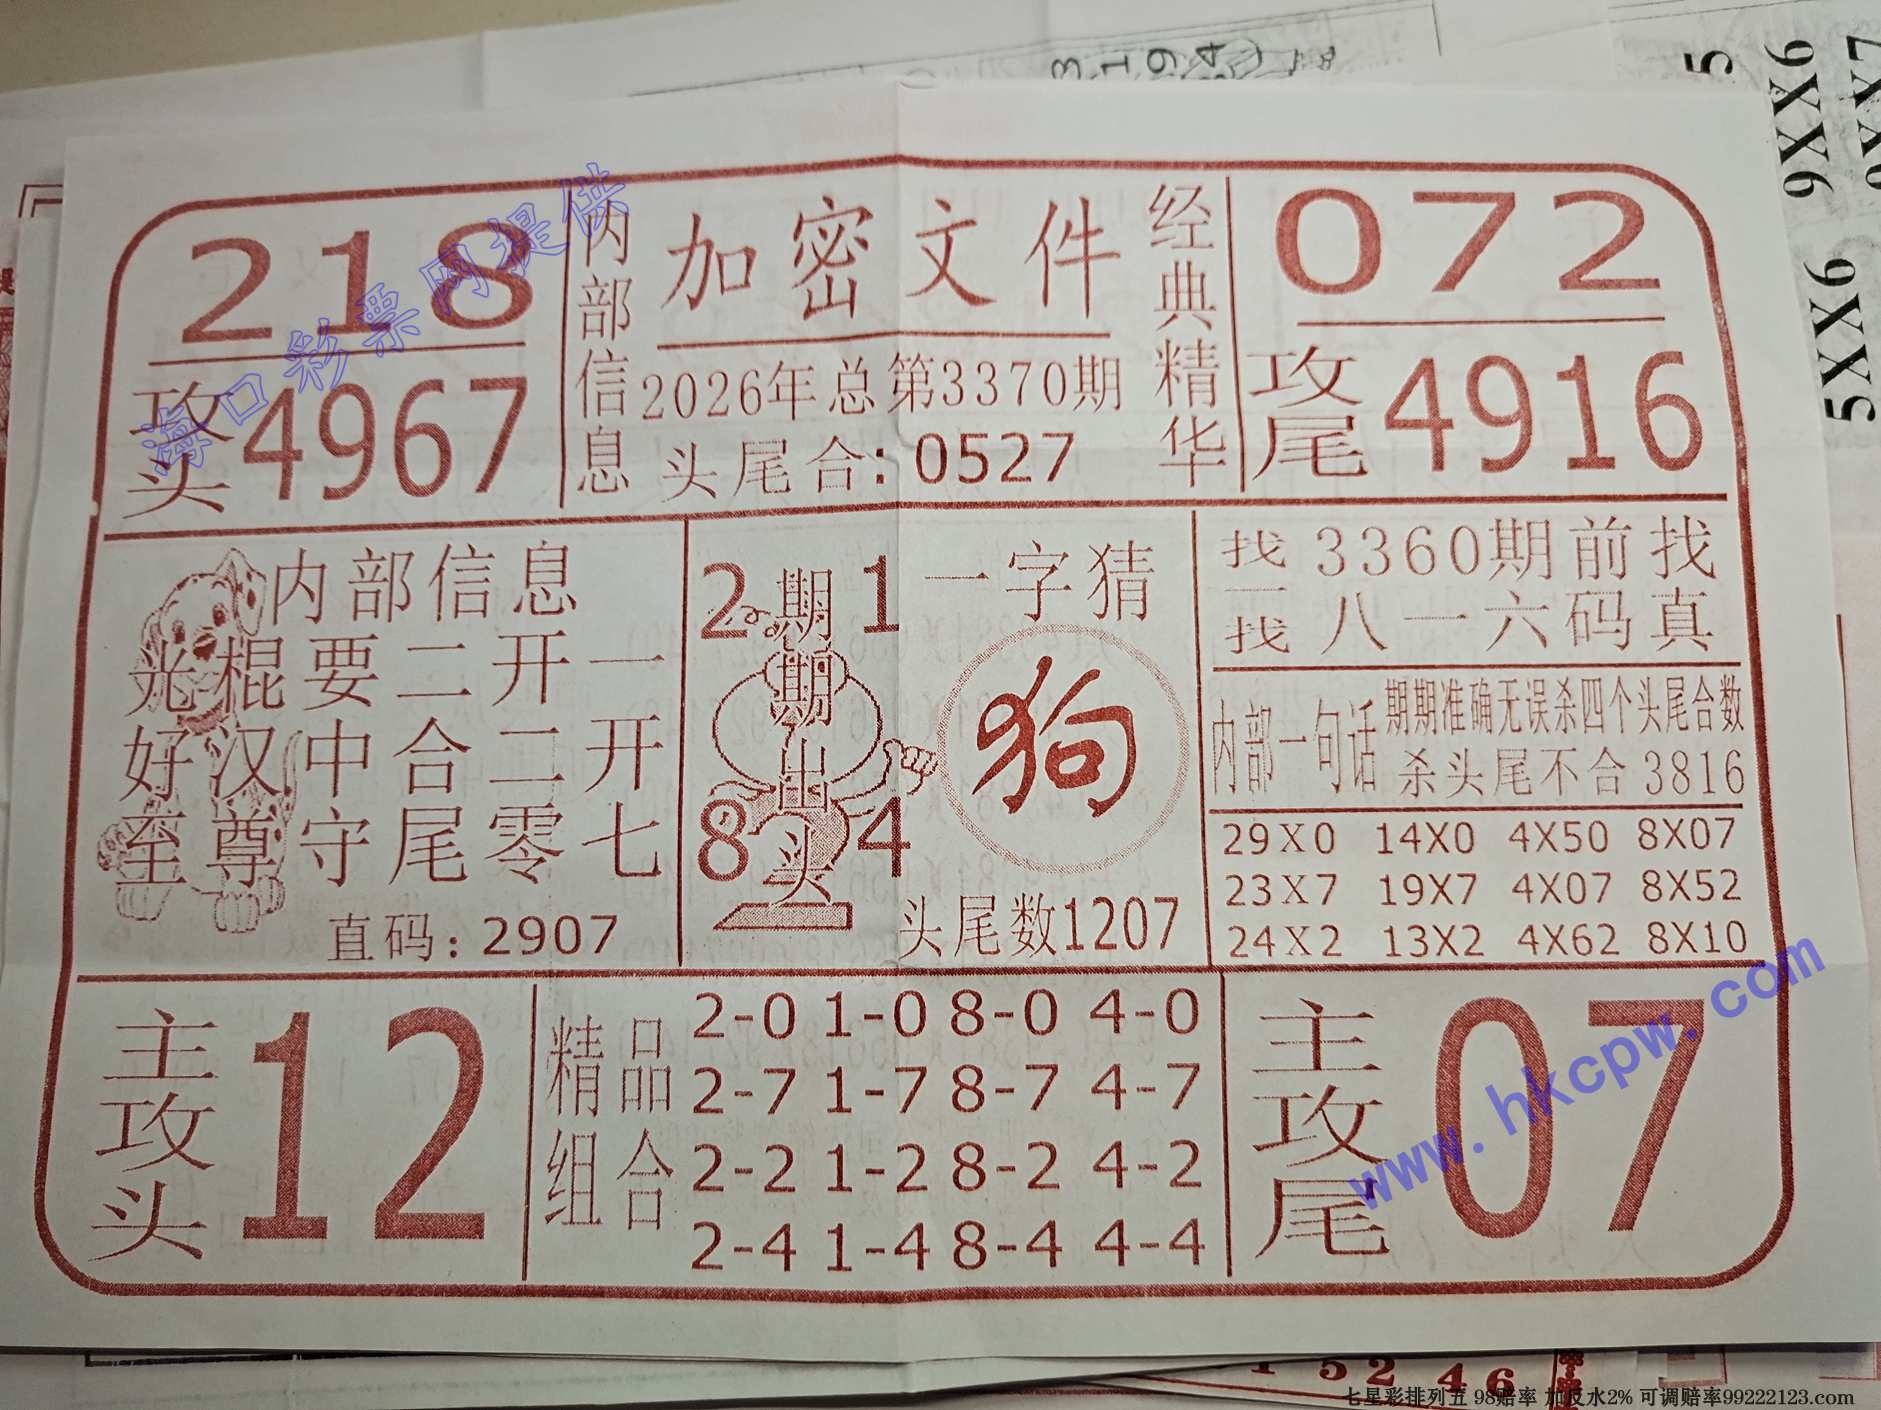 3194
5
9XX6
5XX6
218
攻头4967
内部信息
加密文件
2026年总第3370期
头尾合：0527
经典精华
072
攻尾4916
海口彩票网提供
内部信息
光棍要二开一
好汉中合二开
至尊守尾零七
直码：2907
2 1
期期出头
8 4
一字猜
狗
头尾数1207
找一找
3360期前找
八一六码真
内部一句话
期期准确无误杀四个头尾合数
杀头尾不合3816
29X0 14X0 4X50 8X07
23X7 19X7 4X07 8X52
24X2 13X2 4X62 8X10
主攻头
12
精品组合
2-0 1-0 8-0 4-0
2-7 1-7 8-7 4-7
2-2 1-2 8-2 4-2
2-4 1-4 8-4 4-4
主攻尾
07
www.hkcpw.com
1 52 46
七星彩排列五 98赔率 加反水2% 可调赔率99222123.com